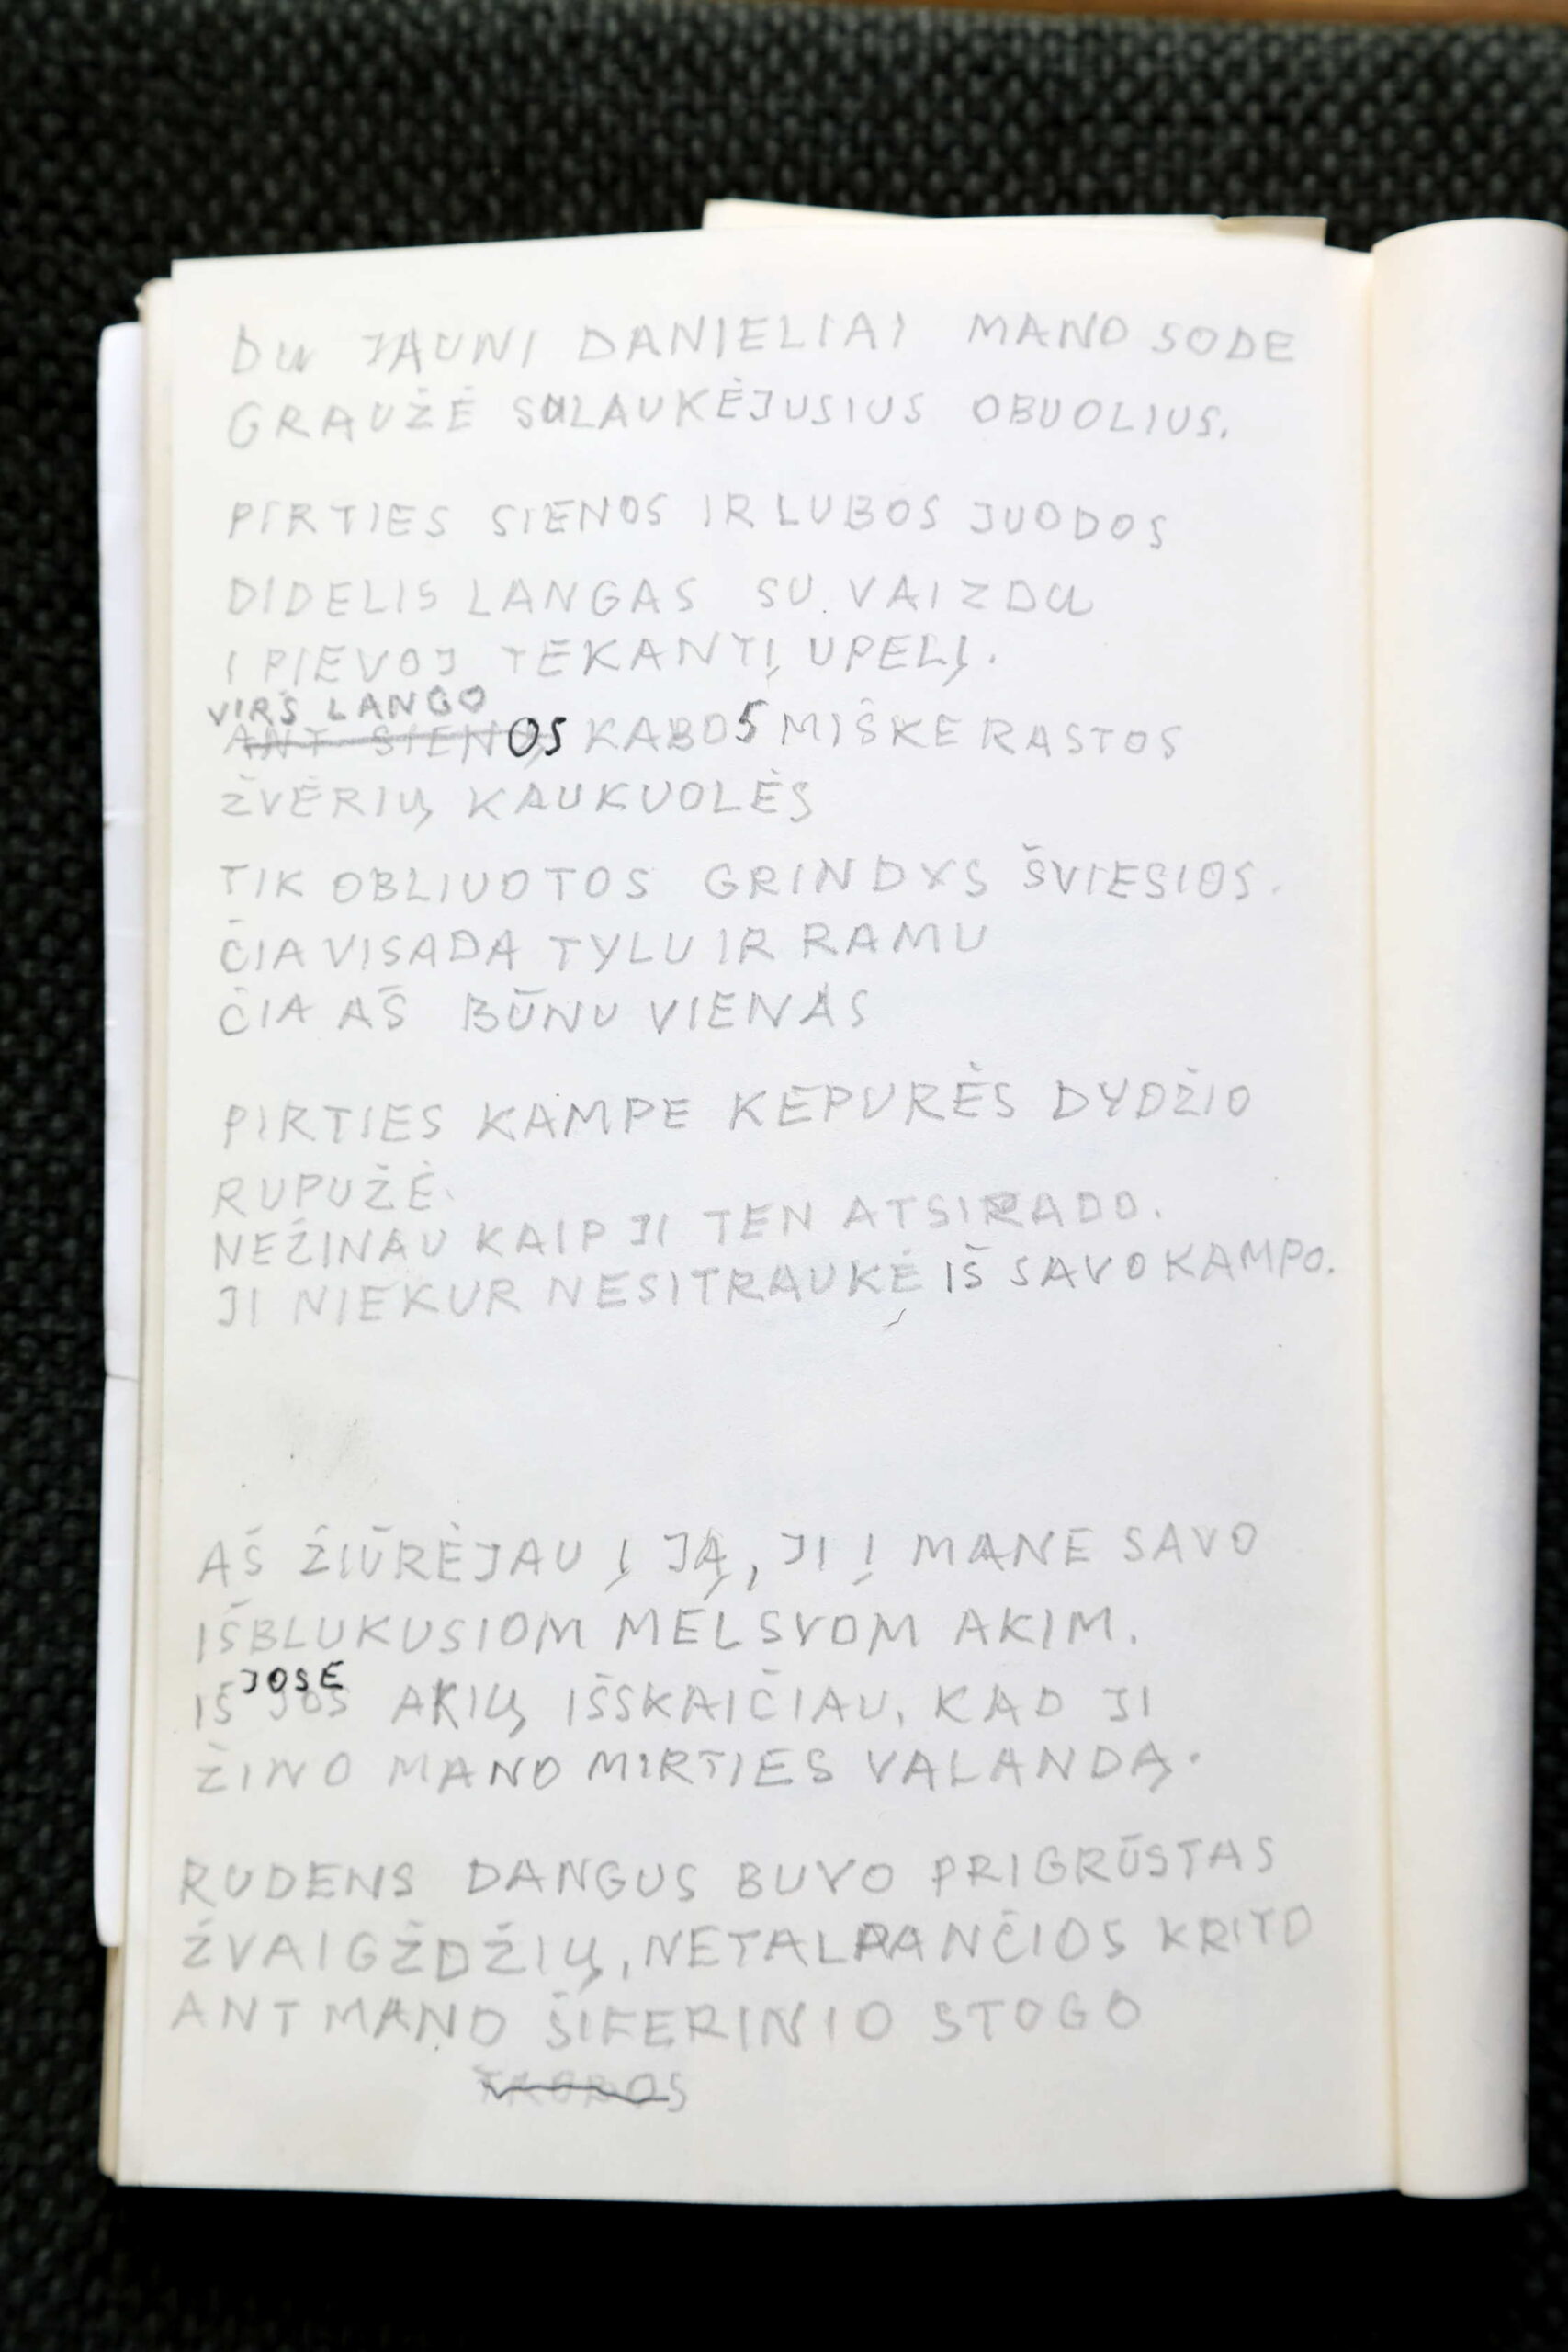 DU JAUNI DANIELIAI MANO SODE
GRAUŽĖ SULAUKĖJUSIUS OBUOLIUS.
PIRTIES SIENOS IR LUBOS JUODOS
DIDELIS LANGAS SU VAIZDU
I PIEVOJ TEKANTĮ UPELĮ.
VIRŠ LANGO
ANT SIENOS KABOS MIŠKE RASTOS
ŽVĖRIŲ KAUKUOLĖS
TIK OBLIUOTOS GRINDYS ŠVIESIOS.
ČIA VISADA TYLU IR RAMU
ČIA AŠ BŪNU VIENAS
PIRTIES KAMPE KEPURĖS DYDŽIO
RUPUŽĖ.
NEŽINAU KAIP JI TEN ATSIRADO.
JI NIEKUR NESITRAUKĖ IŠ SAVO KAMPO.
AŠ ŽIŪRĖJAU Į JĄ, JI Į MANE SAVO
IŠBLUKUSIOM MĖLSVOM AKIM.
JOSE
IŠ JOS AKIŲ IŠSKAIČIAU, KAD JI
ŽINO MANO MIRTIES VALANDĄ.
RUDENS DANGUS BUVO PRIGRŪSTAS
ŽVAIGŽDŽIŲ, NETALPANČIOS KRITO
ANT MANO ŠIFERINIO STOGO